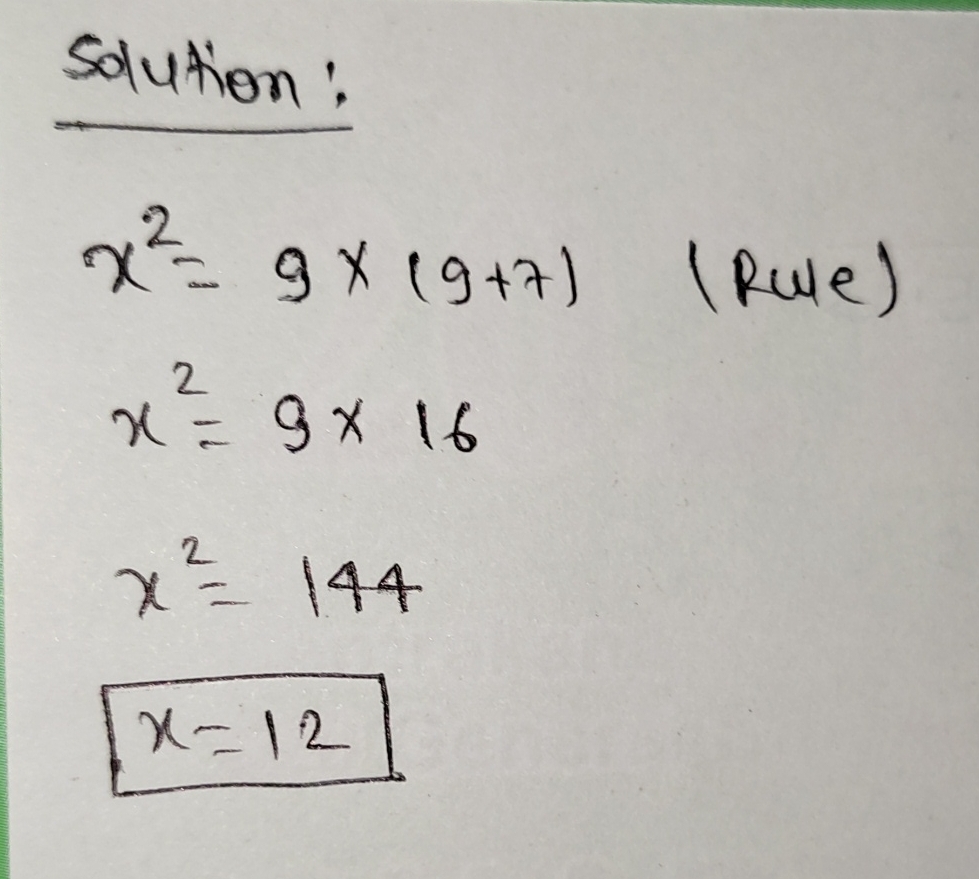 Solution:
x² = 9 × (9+7) (Rule)
x² = 9 × 16
x² = 144
x = 12